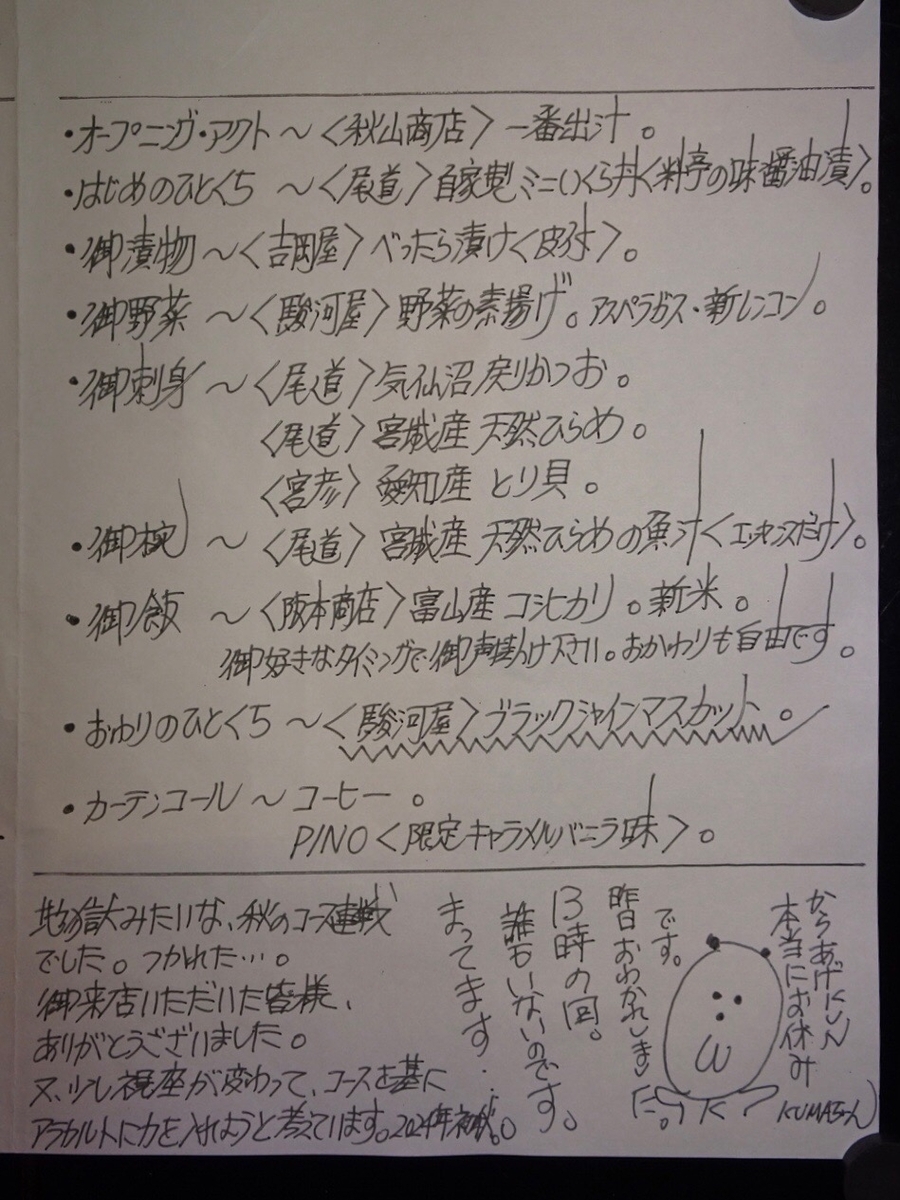 ・オープニング・アクト 〜〈秋山商店〉一番出汁。
・はじめのひとくち 〜〈尾道〉自家製ミニいくら丼〈料亭の味醤油漬〉。
・御漬物〜〈吉岡屋〉べったら漬け〈皮付〉。
・御野菜 〜〈駿河屋〉野菜の素揚げ。アスパラガス・新レンコン。
・御刺身 〜〈尾道〉気仙沼戻りかつお。
〈尾道〉宮城産 天然ひらめ。
〈宮彦〉愛知産 とり貝。
・御椀 〜〈尾道〉宮城産 天然ひらめの魚汁〈エッセンスだけ〉。
・御飯 〜〈阪本商店〉富山産 コシヒカリ。新米。
御好きなタイミングで御声掛け下さい。おかわりも自由です。
・おわりのひとくち 〜〈駿河屋〉ブラックシャインマスカット。
・カーテンコール 〜 コーヒー。
PINO〈限定キャラメルバニラ味〉。
地獄みたいな、秋のコース連戦
でした。つかれた…。
御来店いただいた皆様、
ありがとうございました。
又、少し視座が変わって、コースを基に
アラカルトに力を入れようと考えています。2024年初秋。
からあげにしん
本当にお休み
です。
昨日おわかれしました。
13時の回。
誰もいないのです。
まってます…。
KUMAちゃん